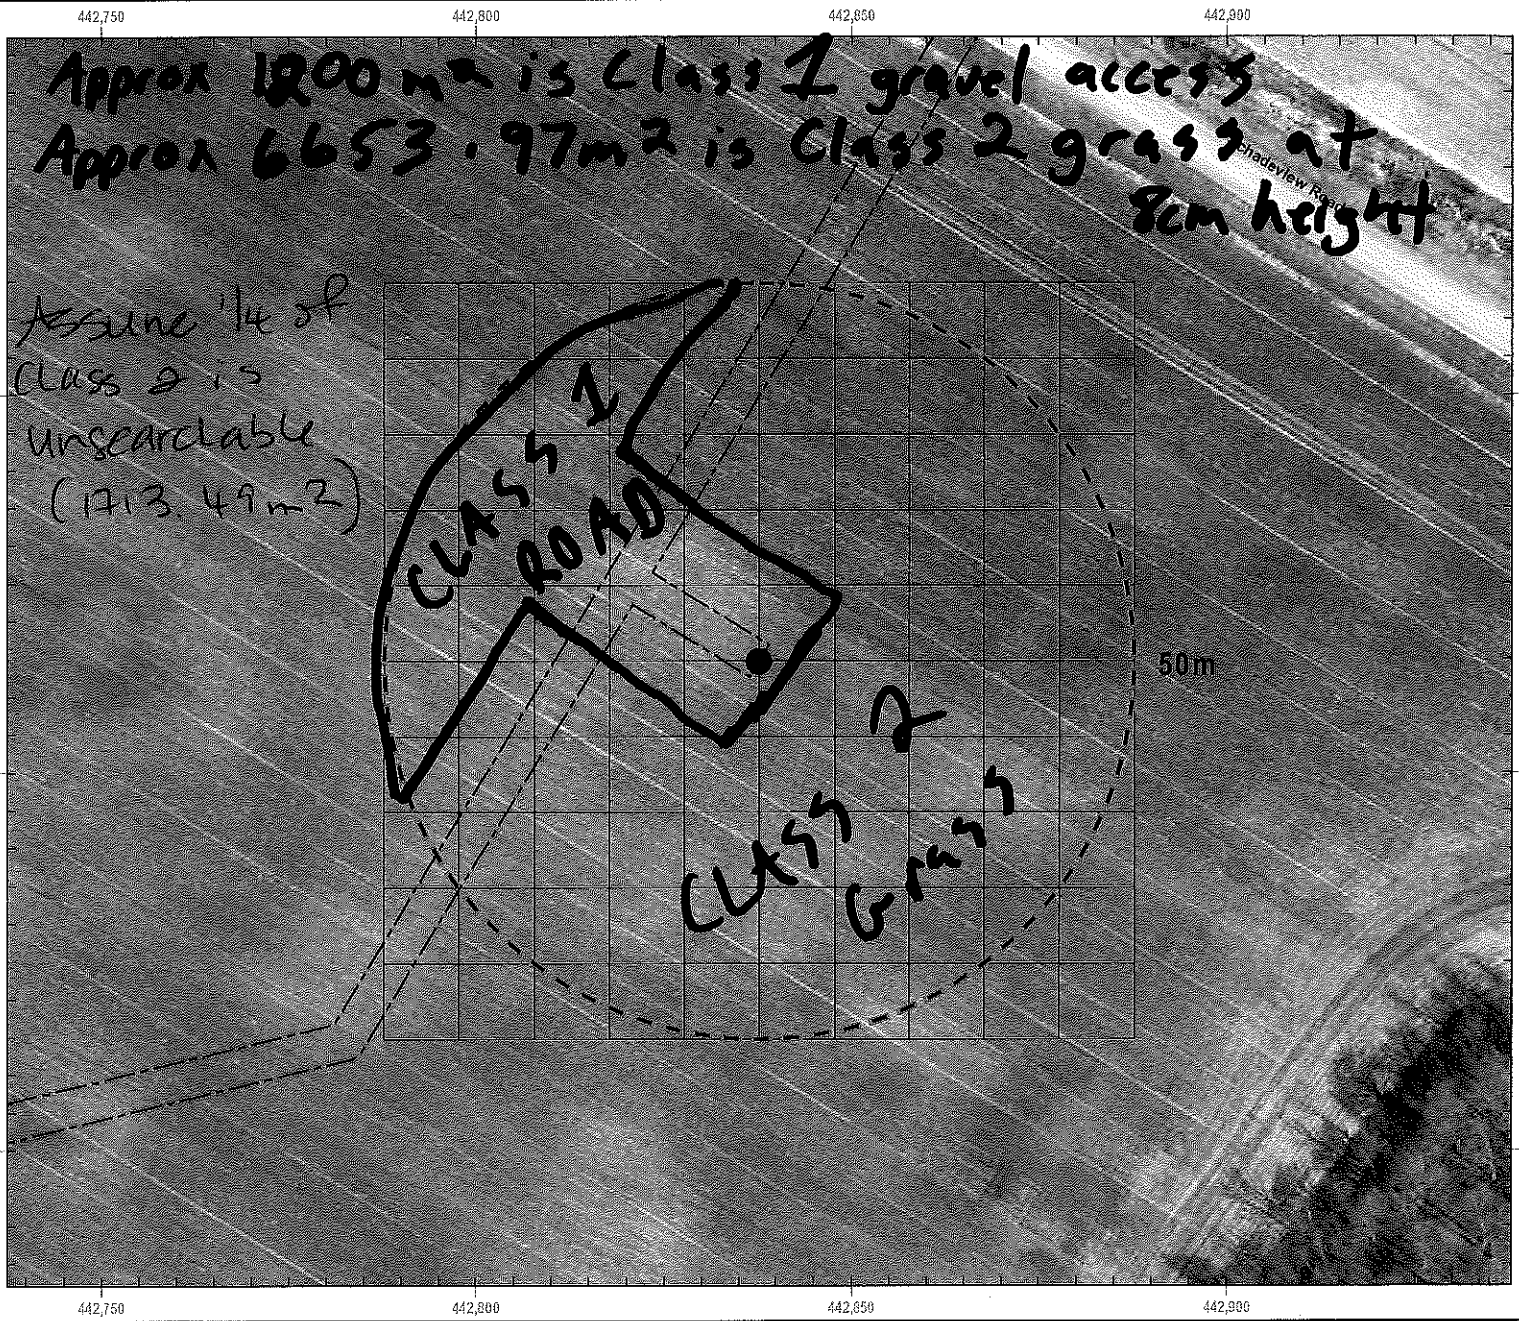 442,750 442,800 442,850 442,900
Approx 1200 m² is Class 1 gravel access
Approx 6653.97m² is Class 2 grass at
8cm height
Shadeview Road
Assume 1/4 of
Class 2 is
unsearchable
(1713.49m²)
CLASS 1
ROAD
50m
CLASS 2
Grass
442,750 442,800 442,850 442,900